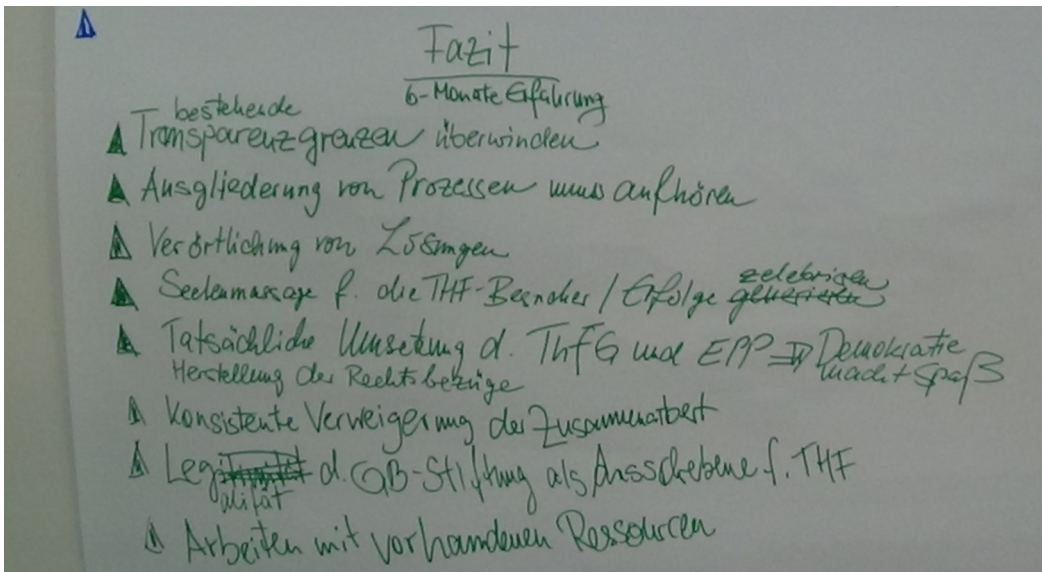 Fazit
6-Monate Erfahrung
bestehende
Transparenzgrenzen überwinden
Ausgliederung von Prozessen muss aufhören
Verörtlichung von Lösungen
zelebrieren
Seelenmassage f. die THF-Besucher / Erfolge generieren
Tatsächliche Umsetzung d. ThFG und EPP ⇒ Demokratie
Herstellung der Rechtsbezüge macht Spaß
Konsistente Verweigerung der Zusammenarbeit
Leg d. GB-Stiftung als f. THF
alität
Arbeiten mit vorhandenen Ressourcen